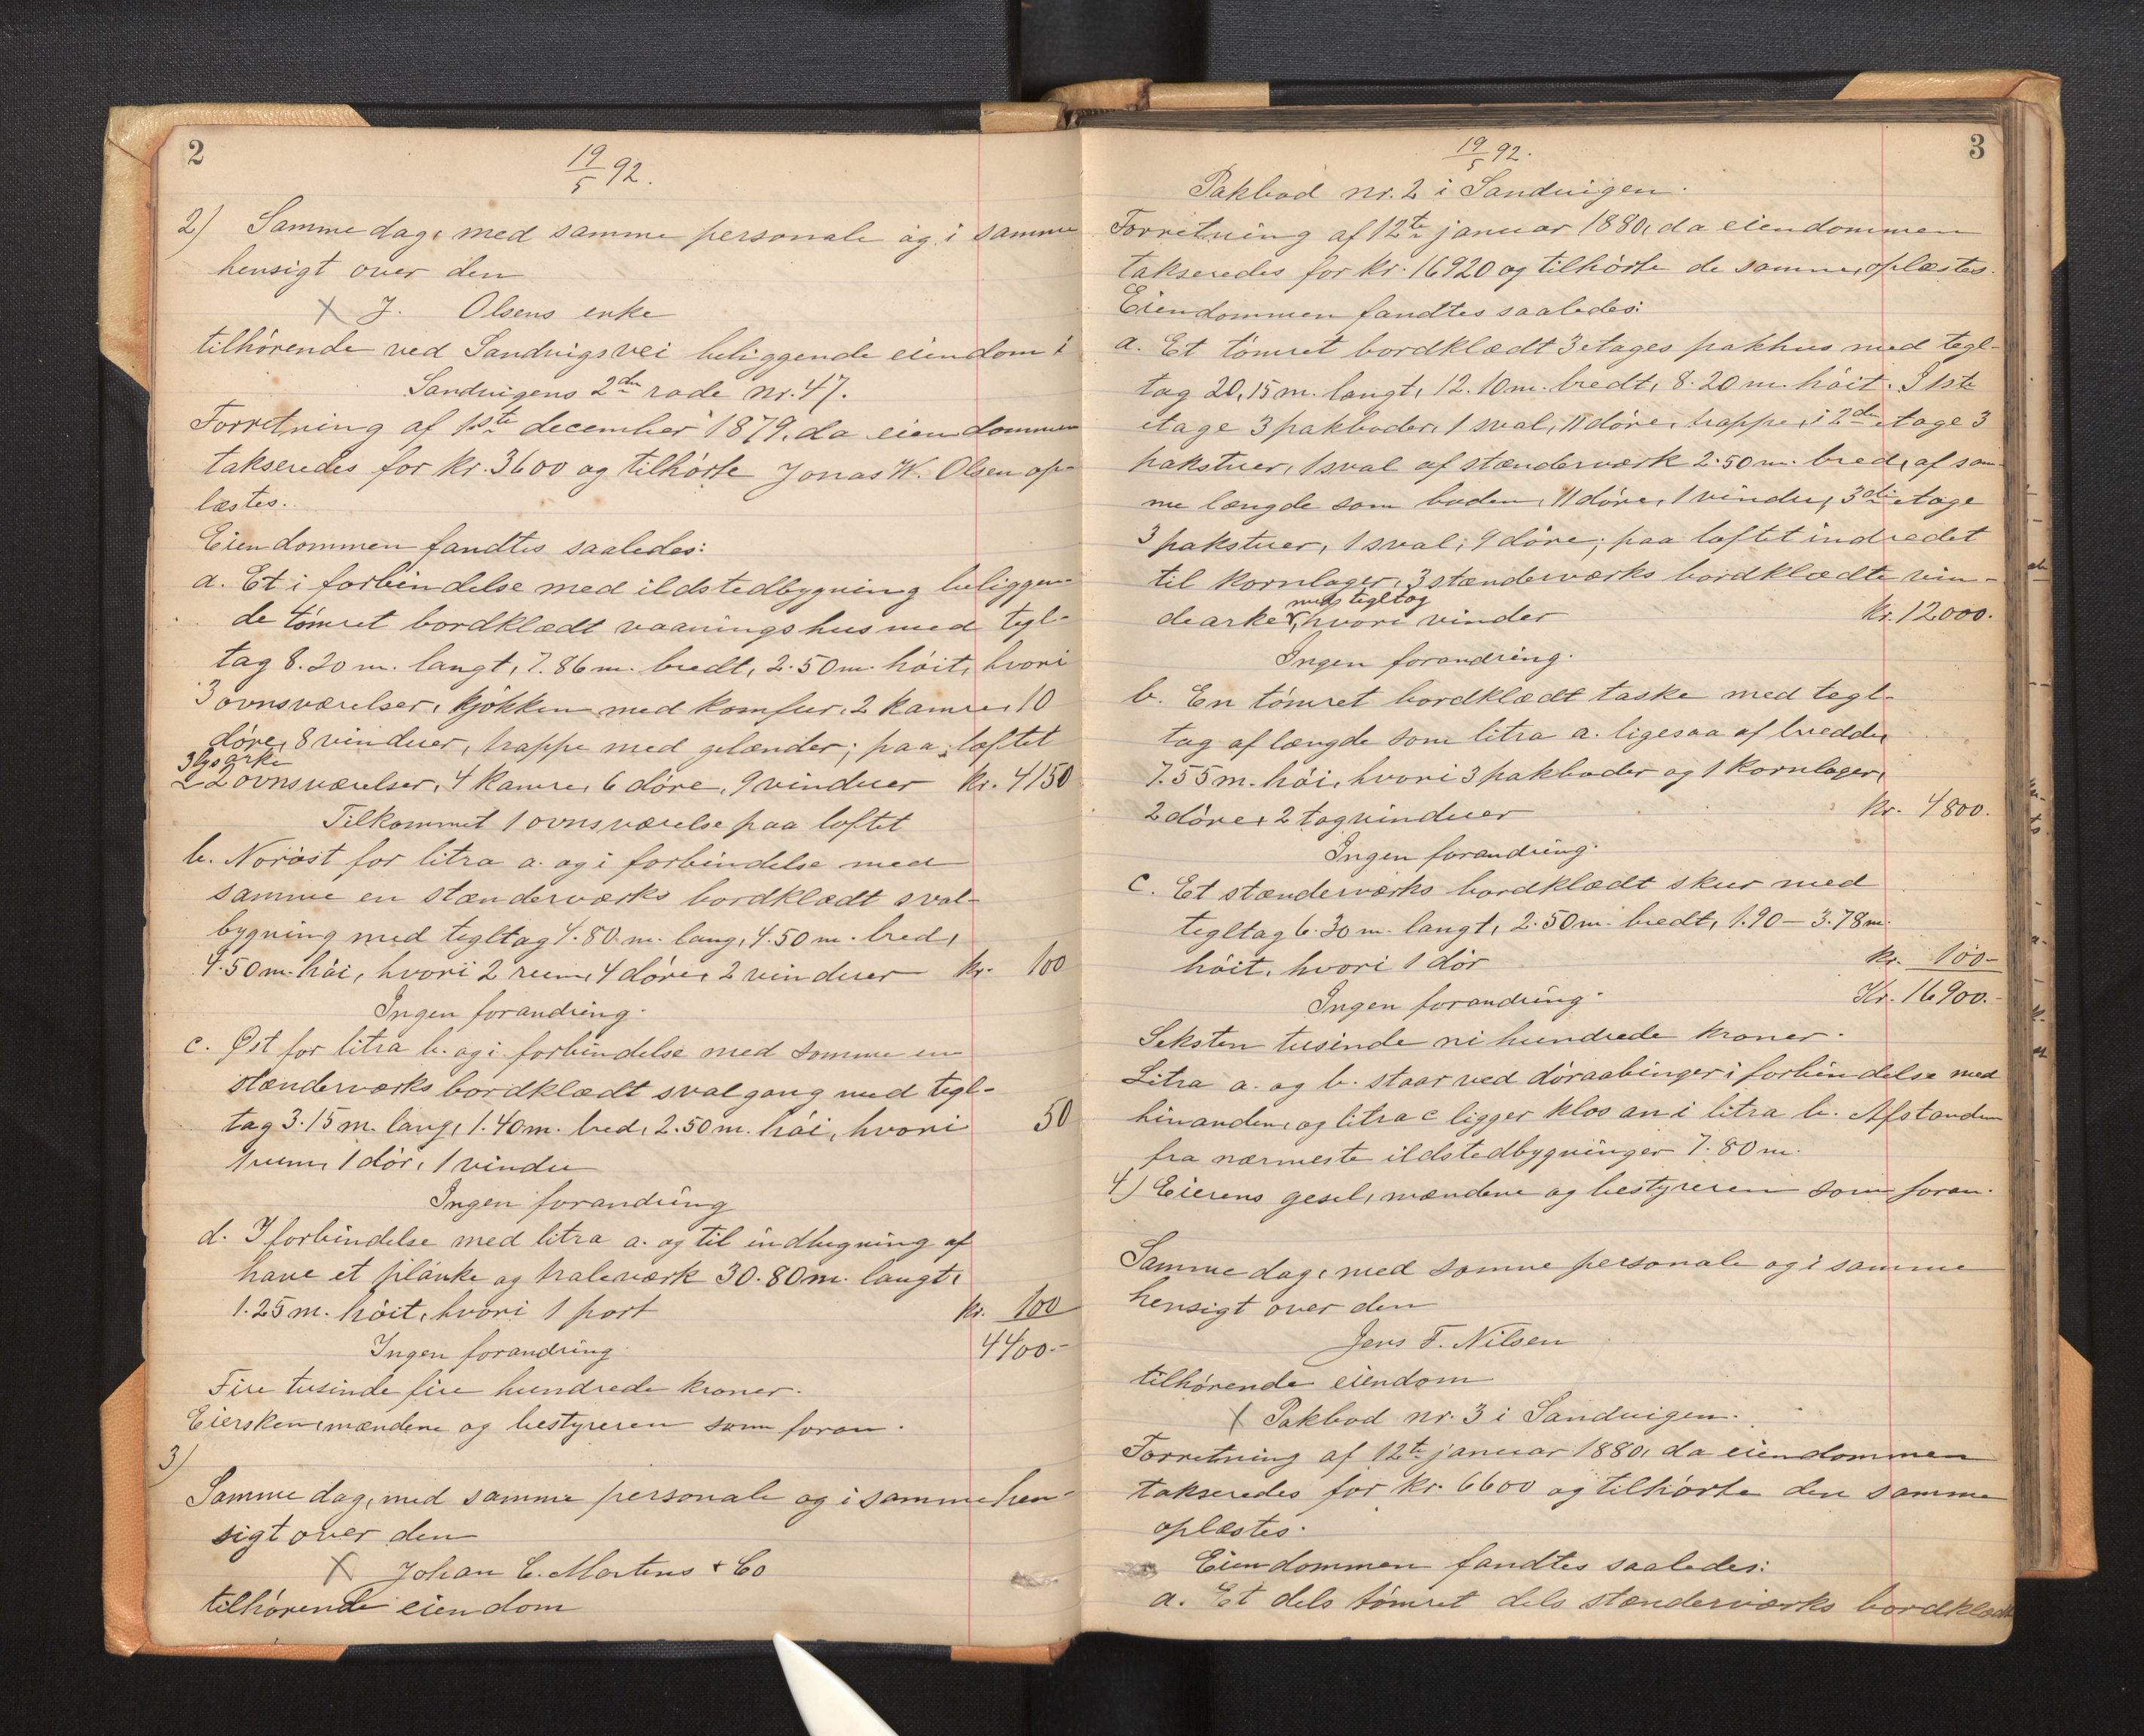 2
19/5 92.
2) Samme dag, med samme personale og i samme
hensigt over den
X J. Olsens enke
tilhørende ved Sandvigsvei beliggende eiendom i
Sandvigens 2den rode nr. 47.
Forretning af 1ste december 1879, da eiendommen
takseredes for kr. 3600 og tilhørte Jonas W. Olsen op-
læstes.
Eiendommen fandtes saaledes:
a. Et i forbindelse med ildstedbygning beliggen-
de tømret bordklædt vaaningshus med tegl-
tag 8.20 m. langt, 7.86 m. bredt, 2.50 m. høit, hvori
3 ovnsværelser, kjøkken med komfur, 2 kamre, 10
døre, 8 vinduer, trappe med gelænder; paa loftet
2 ovnsværelser, 4 kamre, 6 døre, 9 vinduer kr. 4150
Tilkommet 1 ovnsværelse paa loftet
b. Norøst for litra a. og i forbindelse med
samme en stænderværks bordklædt sval-
bygning med tegltag 4.80 m. lang, 4.50 m. bred,
4.50 m. høi, hvori 2 rum, 4 døre, 2 vinduer kr. 100
Ingen forandring.
c. Øst for litra b. og i forbindelse med samme en
stænderværks bordklædt svalgang med tegl-
tag 3.15 m. lang, 1.40 m. bred, 2.50 m. høi, hvori 50
1 rum, 1 dør, 1 vindu
Ingen forandring
d. I forbindelse med litra a. og til indbygning af
have et planke og traleværk 30.80 m. langt,
1.25 m. høit, hvori 1 port kr. 100
Ingen forandring. 4400.-
Fire tusinde fire hundrede kroner.
Eiersken, mændene og bestyreren som foran.
3)
Samme dag, med samme personale og i samme hen-
sigt over den
X Johan C. Martens & Co
tilhørende eiendom
3
19/5 92.
Pakbod nr. 2 i Sandvigen.
Forretning af 12te januar 1880, da eiendommen
takseredes for kr. 16920 og tilhørte de samme, oplæstes.
Eiendommen fandtes saaledes:
a. Et tømret bordklædt 3 etages pakhus med tegl-
tag 20.15 m. langt, 12.10 m. bredt, 8.20 m. høit. I 1ste
etage 3 pakboder, 1 sval, 11 døre, trappe, i 2den etage 3
pakstuer, 1 sval af stænderværk 2.50 m. bred, af sam-
me længde som boden, 11 døre, 1 vindu, 3die etage
3 pakstuer, 1 sval, 9 døre; paa loftet indredet
til kornlager, 3 stænderværks bordklædte vin-
med tegltag
duearker, hvori vinder kr. 12000.
Ingen forandring.
b. En tømret bordklædt taske med tegl-
tag af længde som litra a. ligesaa af bredde,
7.55 m. høi, hvori 3 pakboder og 1 kornlager,
2 døre, 2 tagvinduer kr. 4800.
Ingen forandring.
c. Et stænderværks bordklædt skur med
tegltag 6.30 m. langt, 2.50 m. bredt, 1.90 – 3.78 m.
høit, hvori 1 dør kr. 100-
Ingen forandring. Kr. 16900.-
Seksten tusinde ni hundrede kroner.
Litra a. og b. staar ved døraabinger i forbindelse med
hinanden, og litra c ligger klos an i litra b. Afstanden
fra nærmeste ildstedbygninger 7.80 m.
4) Eierens gesel, mændene og bestyreren som foran.
Samme dag, med samme personale og i samme
hensigt over den
Jens F. Nilsen
tilhørende eiendom
X Pakbod nr. 3 i Sandvigen.
Forretning af 12te januar 1880, da eiendommen
takseredes for kr. 6600 og tilhørte den samme
oplæstes.
Eiendommen fandtes saaledes:
a. Et dels tømret dels stænderværks bordklædt